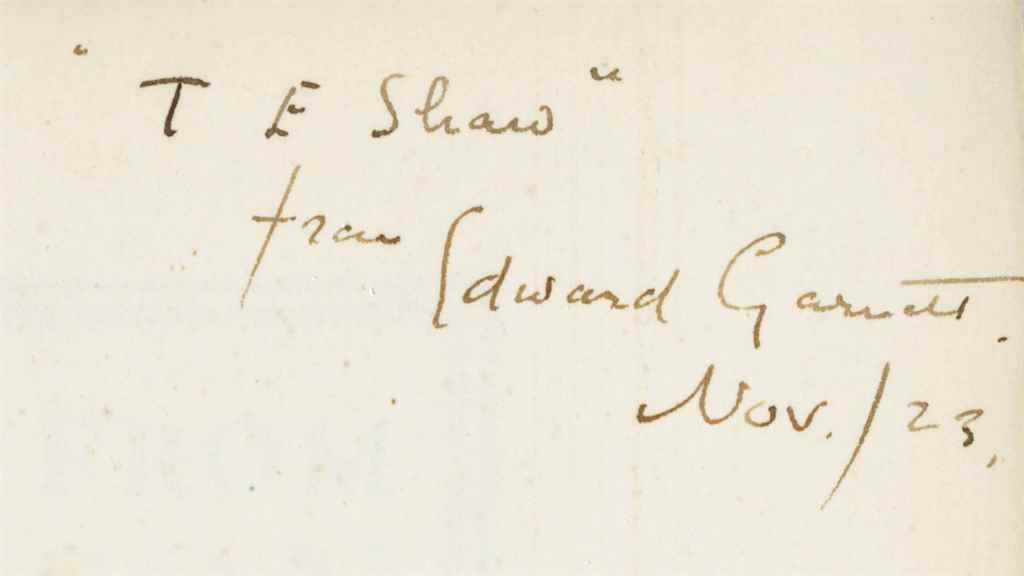 "T E Shaw"
from
Edward Garnett.
Nov./23.